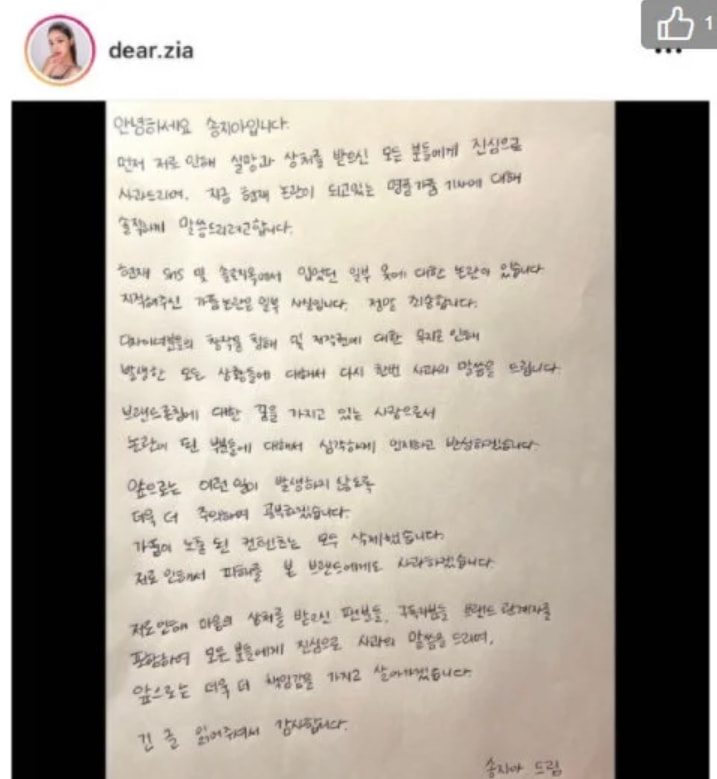 dear.zia
1
안녕하세요 송지아입니다.
먼저 저로 인해 실망과 상처를 받으신 모든 분들에게 진심으로
사과드리며, 지금 현재 논란이 되고있는 명품가품 기사에 대해
솔직하게 말씀드리려고합니다.
현재 SNS 및 솔로지옥에서 입었던 일부 옷에 대한 논란이 있습니다
지적해주신 가품논란은 일부 사실입니다. 정말 죄송합니다.
디자이너분들의 창작물 침해 및 저작권에 대한 무지로 인해
발생한 모든 상황들에 대해서 다시 한번 사과의 말씀을 드립니다.
브랜드론칭에 대한 꿈을 가지고 있는 사람으로서
논란이 된 부분들에 대해서 심각하게 인지하고 반성하겠습니다.
앞으로는 이런 일이 발생하지 않도록
더욱 더 주의하며 공부하겠습니다.
가품이 노출 된 컨텐츠는 모두 삭제했습니다.
저로 인해서 피해를 본 브랜드에게도 사과하겠습니다.
저로인해 마음의 상처를 받으신 팬분들, 구독자분들 브랜드 관계자를
포함하여 모든 분들에게 진심으로 사과의 말씀을 드리며,
앞으로는 더욱 더 책임감을 가지고 살아가겠습니다.
긴 글 읽어주셔서 감사합니다.
송지아 드림